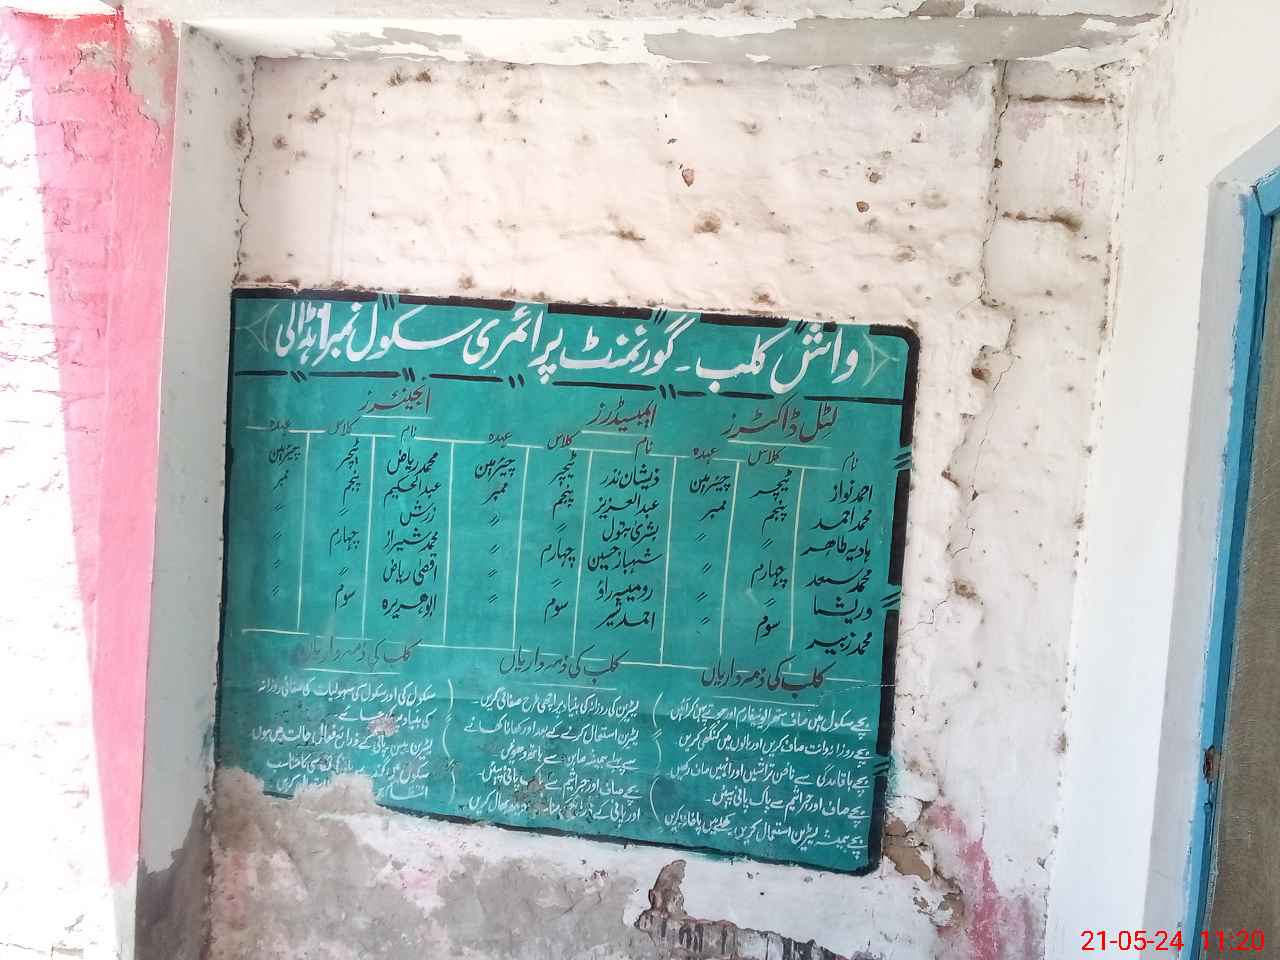 واش کلب ۔ گورنمنٹ پرائمری سکول نمبر1 ہڈالی
لٹل ڈاکٹرز
نام کلاس عہدہ
احمد نواز ٹیچر چیئرمین
محمد احمد پنجم ممبر
ہادیہ طاہر " "
محمد سعد چہارم "
وریشا " "
محمد زبیر سوم "
ایمبیسیڈرز
نام کلاس عہدہ
ذیشان نذر ٹیچر چیئرمین
عبدالعزیز پنجم ممبر
بشریٰ بتول " "
شہباز حسین چہارم "
رومیسہ راؤ " "
احمد شیر سوم "
انجینئرز
نام کلاس عہدہ
محمد ریاض ٹیچر چیئرمین
عبدالحکیم پنجم ممبر
زرش " "
محمد شیراز چہارم "
اقصیٰ ریاض " "
ابوہریرہ سوم "
کلب کی ذمہ داریاں
بچے سکول میں صاف ستھرا یونیفارم اور جوتے پہن کر آئیں
بچے روزانہ دانت صاف کریں اور بالوں میں کنگھی کریں
بچے باقاعدگی سے ناخن تراشیں اور انہیں صاف رکھیں
بچے صاف اور جراثیم سے پاک پانی پیئں ۔
بچے ہمیشہ لیٹرین استعمال کریں کھلے میں پاخانہ نہ کریں
کلب کی ذمہ داریاں
لیٹرین کی روزانہ کی بنیاد پر اچھی طرح صفائی کریں ۔
لیٹرین استعمال کرنے کے بعد اور کھانا کھانے
سے پہلے ہمیشہ صابن سے ہاتھ دھوئیں
بچے صاف اور جراثیم سے پاک پانی پیئں ۔
اور پانی کے دیکھ بھال کریں
کلب کی ذمہ داریاں
سکول کی اور سکول کی سہولیات کی صفائی روزانہ
کی بنیاد پر کی جائے
لیٹرین، بیسن، پانی کے ذرائع فعالی حالت میں ہوں
سکول میں گندے پانی کی نکاسی کا مناسب
انتظام کریں
21-05-24 11:20